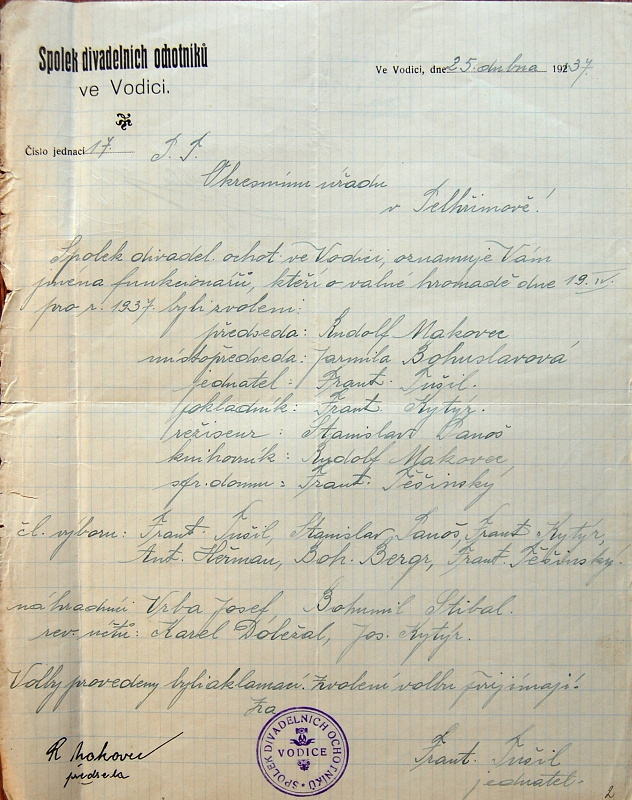 Spolek divadelních ochotníků
ve Vodici.
Ve Vodici, dne 25. dubna 192 37.
Číslo jednací 17.
P. T.
Okresnímu úřadu
v Pelhřimově!
Spolek divadel. ochot. ve Vodici, oznamuje Vám
jména funkcionářů, kteří o valné hromadě dne 19. IV.
pro r. 1937. byli zvoleni:
předseda: Rudolf Makovec
místopředseda: Jarmila Bohuslavová
jednatel: Frant. Tušil.
pokladník: Frant. Kytýr.
režiseur: Stanislav Panoš
knihovník: Rudolf Makovec
Frant. Těšinský
čl. výboru: Frant. Tušil, Stanislav Panoš, Frant. Kytýr,
Ant. Heřman, Boh. Bergr, Frant. Těšinský.
náhradníci Vrba Josef, Bohumil Stibal.
rev. účtů: Karel Doležal, Jos. Kytýr.
Volby provedeny byli aklamací. Zvolení volbu přijímají.
Za
SPOLEK DIVADELNÍCH OCHOTNÍKŮ
VODICE
R Makovec
předseda
Frant. Tušil
jednatel.
2